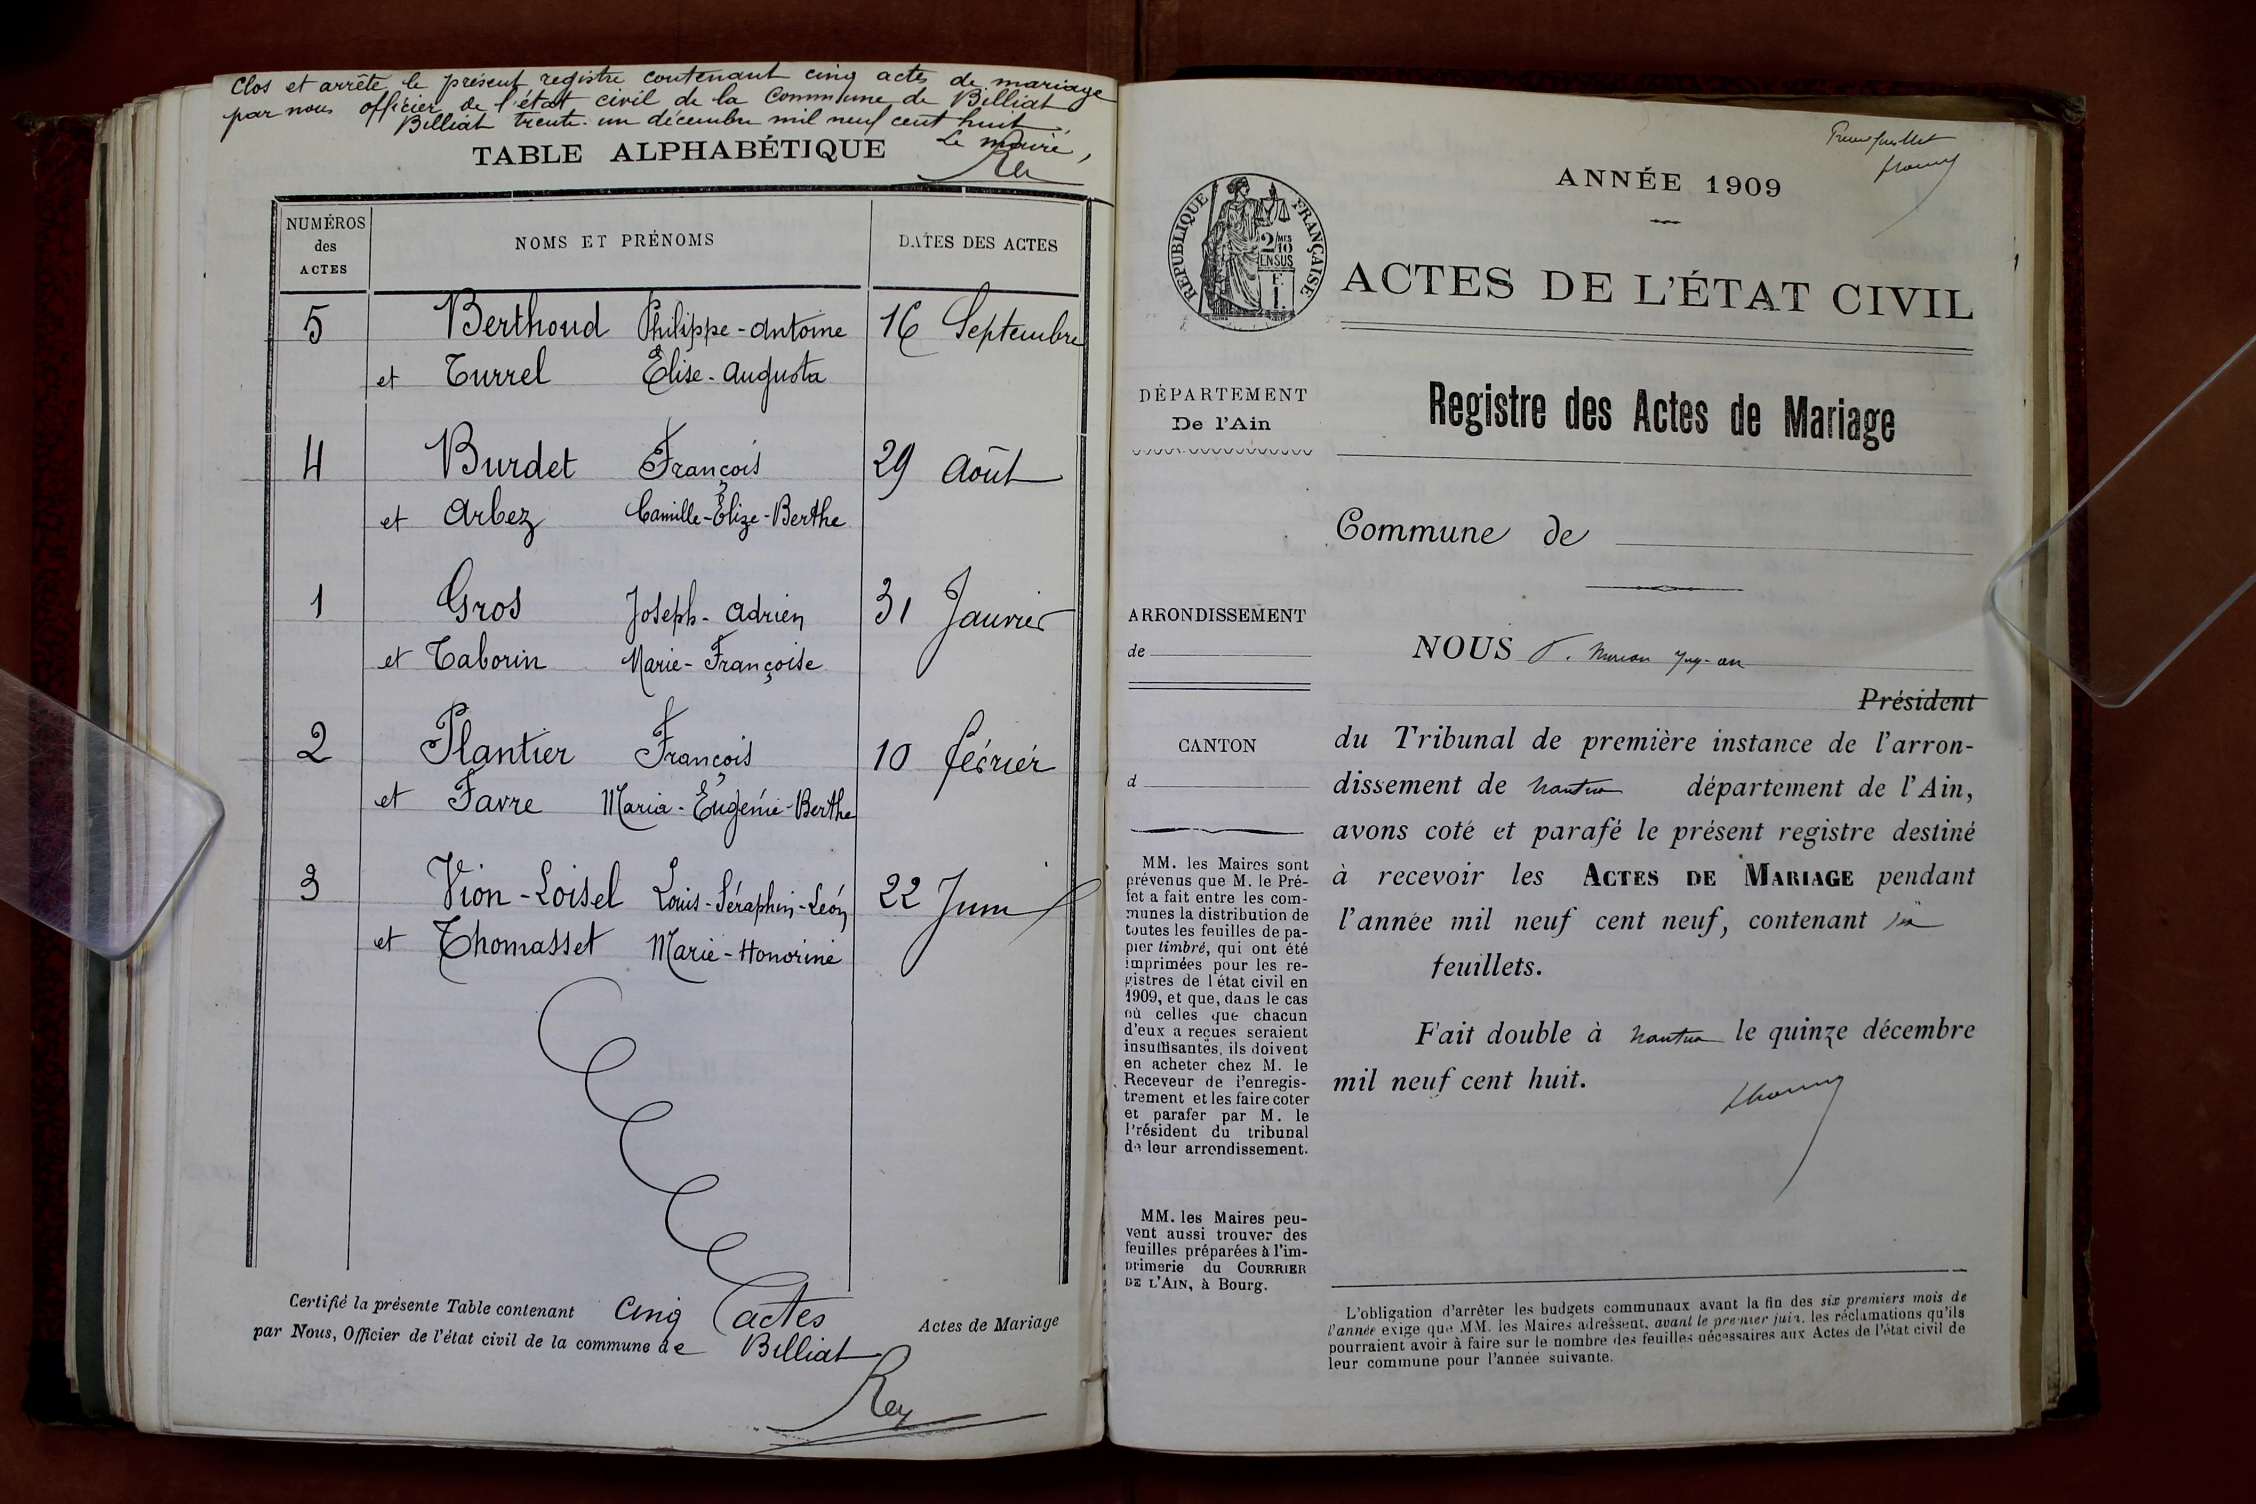 Clos et arrêté le présent registre contenant cinq actes de mariage
par nous officier de l'état civil de la Commune de Billiat
Billiat trente-un décembre mil neuf cent huit
Le maire,
Rey
TABLE ALPHABÉTIQUE
NUMÉROS des ACTES
NOMS ET PRÉNOMS
DATES DES ACTES
5 Berthoud Philippe-Antoine 16 Septembre
et Turrel Élise-Augusta
4 Burdet François 29 Août
et Arbez Camille-Élize-Berthe
1 Gros Joseph-Adrien 31 Janvier
et Taborin Marie-Françoise
2 Plantier François 10 février
et Favre Maria-Eugénie-Berthe
3 Vion-Loisel Louis-Séraphin-Léon 22 Juin
et Thomasset Marie-Honorine
Certifié la présente Table contenant cinq actes Actes de Mariage
par Nous, Officier de l'état civil de la commune de Billiat
Rey
ANNÉE 1909
RÉPUBLIQUE FRANÇAISE
2/10 MES
EN SUS
1
ACTES DE L'ÉTAT CIVIL
DÉPARTEMENT
De l'Ain
Registre des Actes de Mariage
Commune de
ARRONDISSEMENT
de
CANTON
d
MM. les Maires sont
prévenus que M. le Pré-
fet a fait entre les com-
munes la distribution de
toutes les feuilles de pa-
pier timbré, qui ont été
imprimées pour les re-
gistres de l'état civil en
1909, et que, dans le cas
où celles que chacun
d'eux a reçues seraient
insuffisantes, ils doivent
en acheter chez M. le
Receveur de l'enregis-
trement et les faire coter
et parafer par M. le
Président du tribunal
de leur arrondissement.
MM. les Maires peu-
vent aussi trouver des
feuilles préparées à l'im-
primerie du COURRIER
DE L'AIN, à Bourg.
NOUS
Président
du Tribunal de première instance de l'arron-
dissement de Nantua département de l'Ain,
avons coté et parafé le présent registre destiné
à recevoir les ACTES DE MARIAGE pendant
l'année mil neuf cent neuf, contenant
feuillets.
Fait double à Nantua le quinze décembre
mil neuf cent huit.
L'obligation d'arrêter les budgets communaux avant la fin des six premiers mois de
l'année exige que MM. les Maires adressent, avant le premier juin, les réclamations qu'ils
pourraient avoir à faire sur le nombre des feuilles nécessaires aux Actes de l'état civil de
leur commune pour l'année suivante.